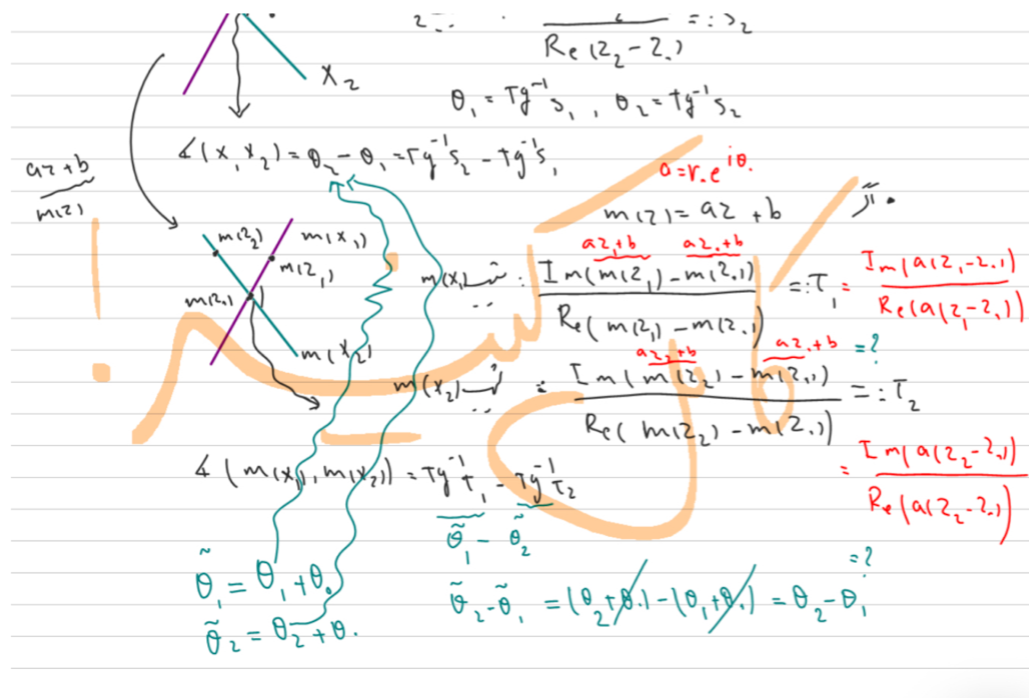 Re(z₂-z₀) =: S₂
X₂
θ₁ = Tg⁻¹ S₁ , θ₂ = Tg⁻¹ S₂
∡(X₁, X₂) = θ₂ - θ₁ = Tg⁻¹ S₂ - Tg⁻¹ S₁
az+b
m(z)
a = r₀e^{iθ₀}
m(z) = az + b
m(z₂) m(X₁)
m(z₁)
m(z₀)
m(X₂)
az₁+b az₀+b
m(X₁) شیب : Im(m(z₁) - m(z₀)) / Re(m(z₁) - m(z₀)) =: T₁ = Im(a(z₁-z₀)) / Re(a(z₁-z₀))
az₂+b az₀+b =?
m(X₂) شیب : Im(m(z₂) - m(z₀)) / Re(m(z₂) - m(z₀)) =: T₂
= Im(a(z₂-z₀)) / Re(a(z₂-z₀))
∡(m(X₁), m(X₂)) = Tg⁻¹ T₁ - Tg⁻¹ T₂
θ̃₁ - θ̃₂
=?
θ̃₁ = θ₁ + θ₀
θ̃₂ - θ̃₁ = (θ₂+θ₀) - (θ₁+θ₀) = θ₂ - θ₁
θ̃₂ = θ₂ + θ₀